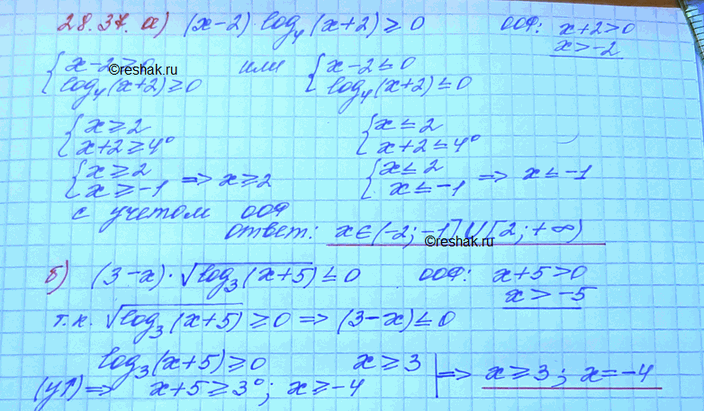 28.37. а) (x-2)·log₄(x+2) ≥ 0 ООФ: x+2>0
x>-2
{ x-2≥0 или { x-2≤0
©reshak.ru
log₄(x+2)≥0 log₄(x+2)≤0
{ x≥2 { x≤2
x+2≥4⁰ x+2≤4⁰
{ x≥2 { x≤2
x≥-1 => x≥2 x≤-1 => x≤-1
с учетом ООФ
ответ: x∈(-2;-1]∪[2;+∞)
©reshak.ru
б) (3-x)·√log₃(x+5) ≤0 ООФ: x+5>0
x>-5
т.к. √log₃(x+5) ≥0 => (3-x)≤0
log₃(x+5)≥0 x≥3
(у↑) => x+5≥3⁰; x≥-4 => x≥3; x=-4